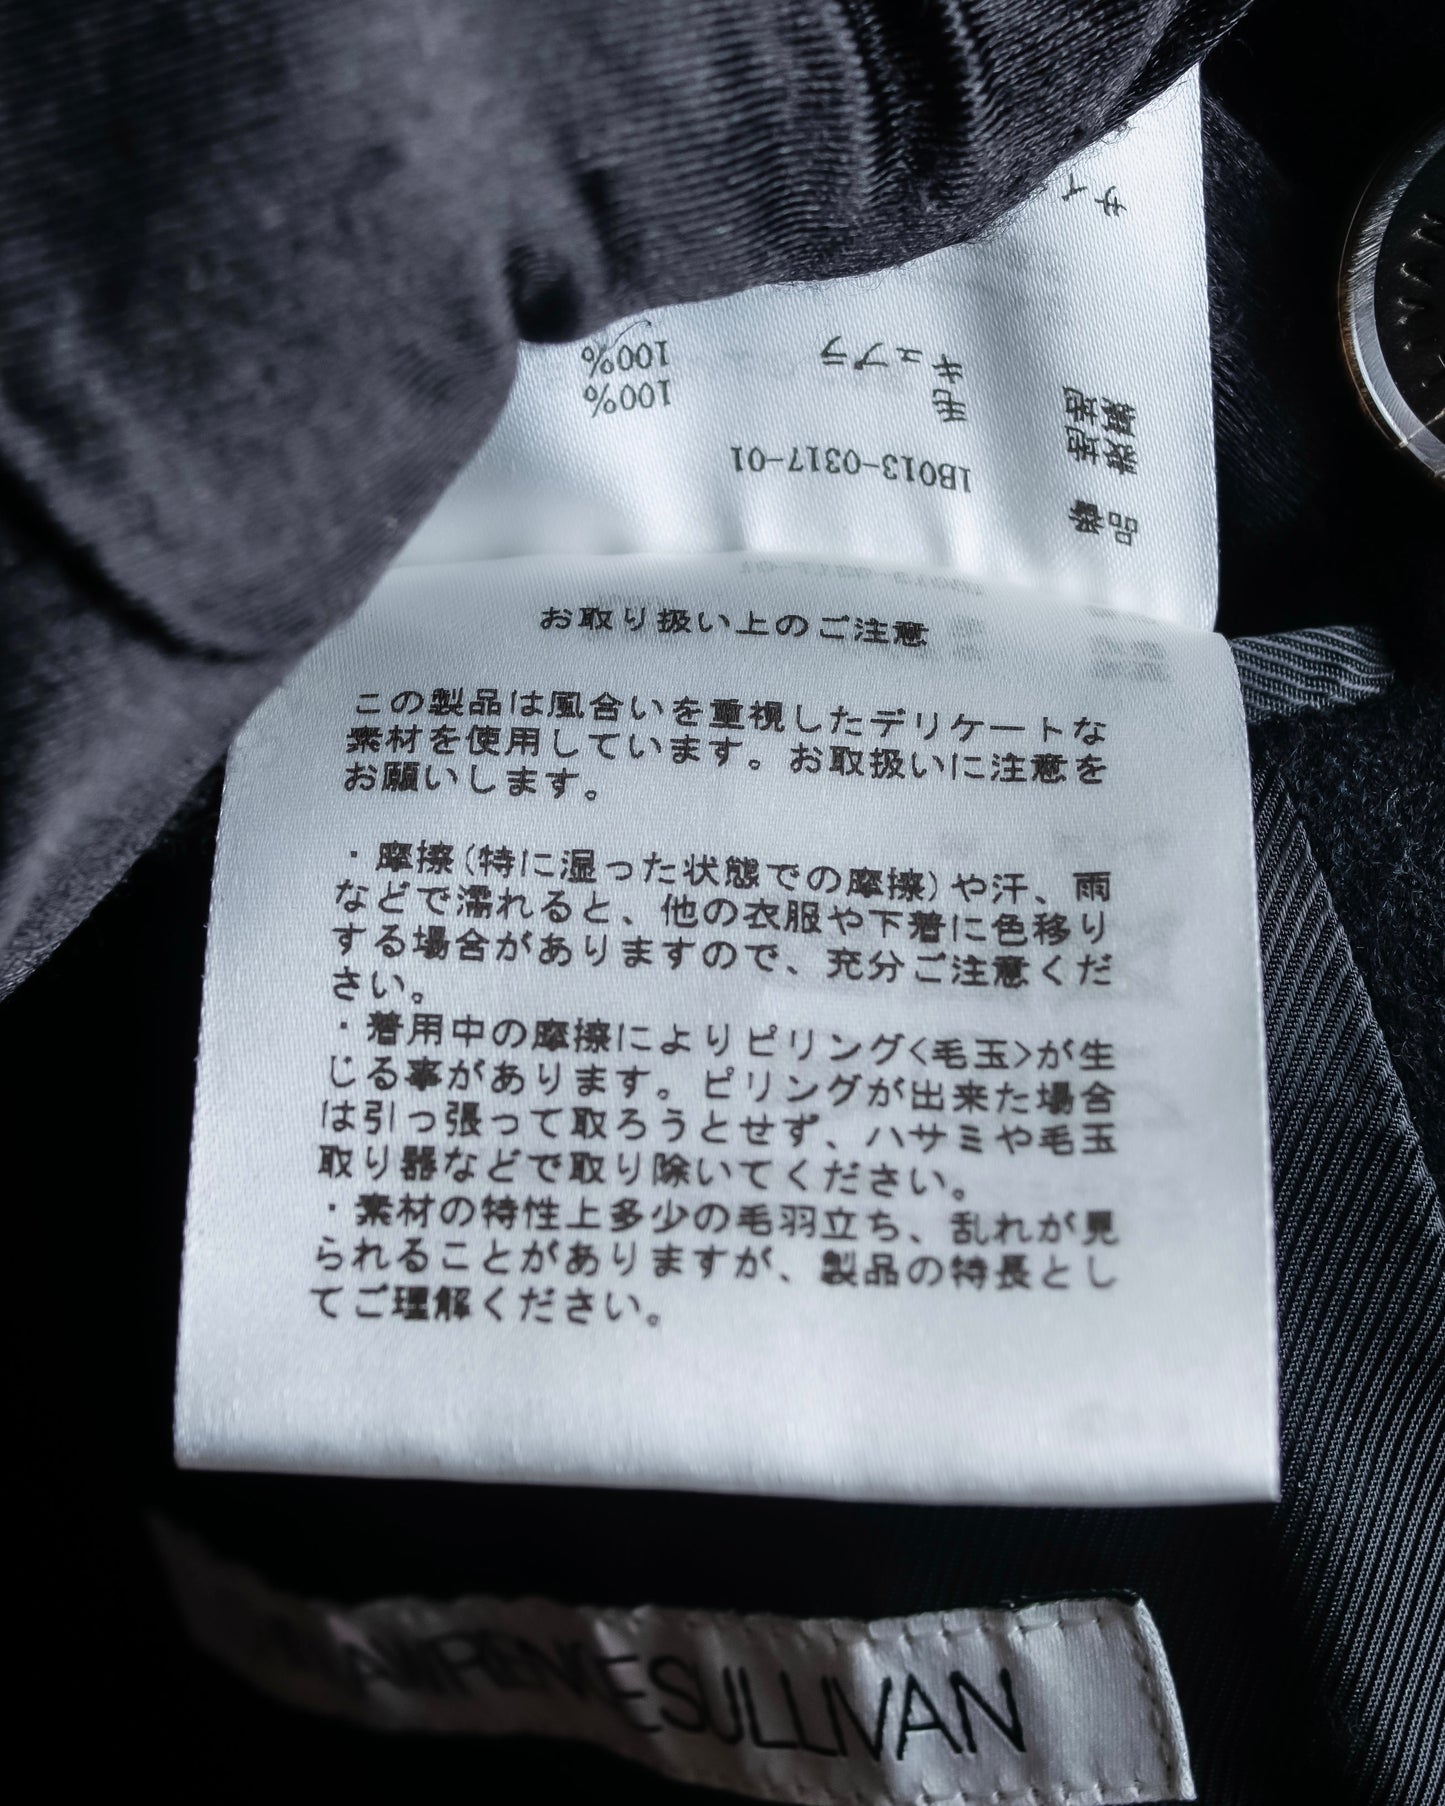 品番 1B013-0317-01
表地 毛 100%
裏地 キュプラ 100%
サイ
お取り扱い上のご注意
この製品は風合いを重視したデリケートな
素材を使用しています。お取扱いに注意を
お願いします。
・摩擦(特に湿った状態での摩擦)や汗、雨
などで濡れると、他の衣服や下着に色移り
する場合がありますので、充分ご注意くだ
さい。
・着用中の摩擦によりピリング<毛玉>が生
じる事があります。ピリングが出来た場合
は引っ張って取ろうとせず、ハサミや毛玉
取り器などで取り除いてください。
・素材の特性上多少の毛羽立ち、乱れが見
られることがありますが、製品の特長とし
てご理解ください。
LAWRENCESULLIVAN